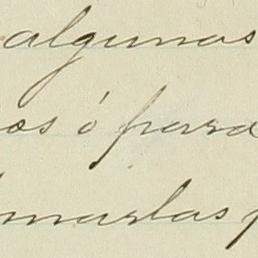 algunos
os ó para
marlas p